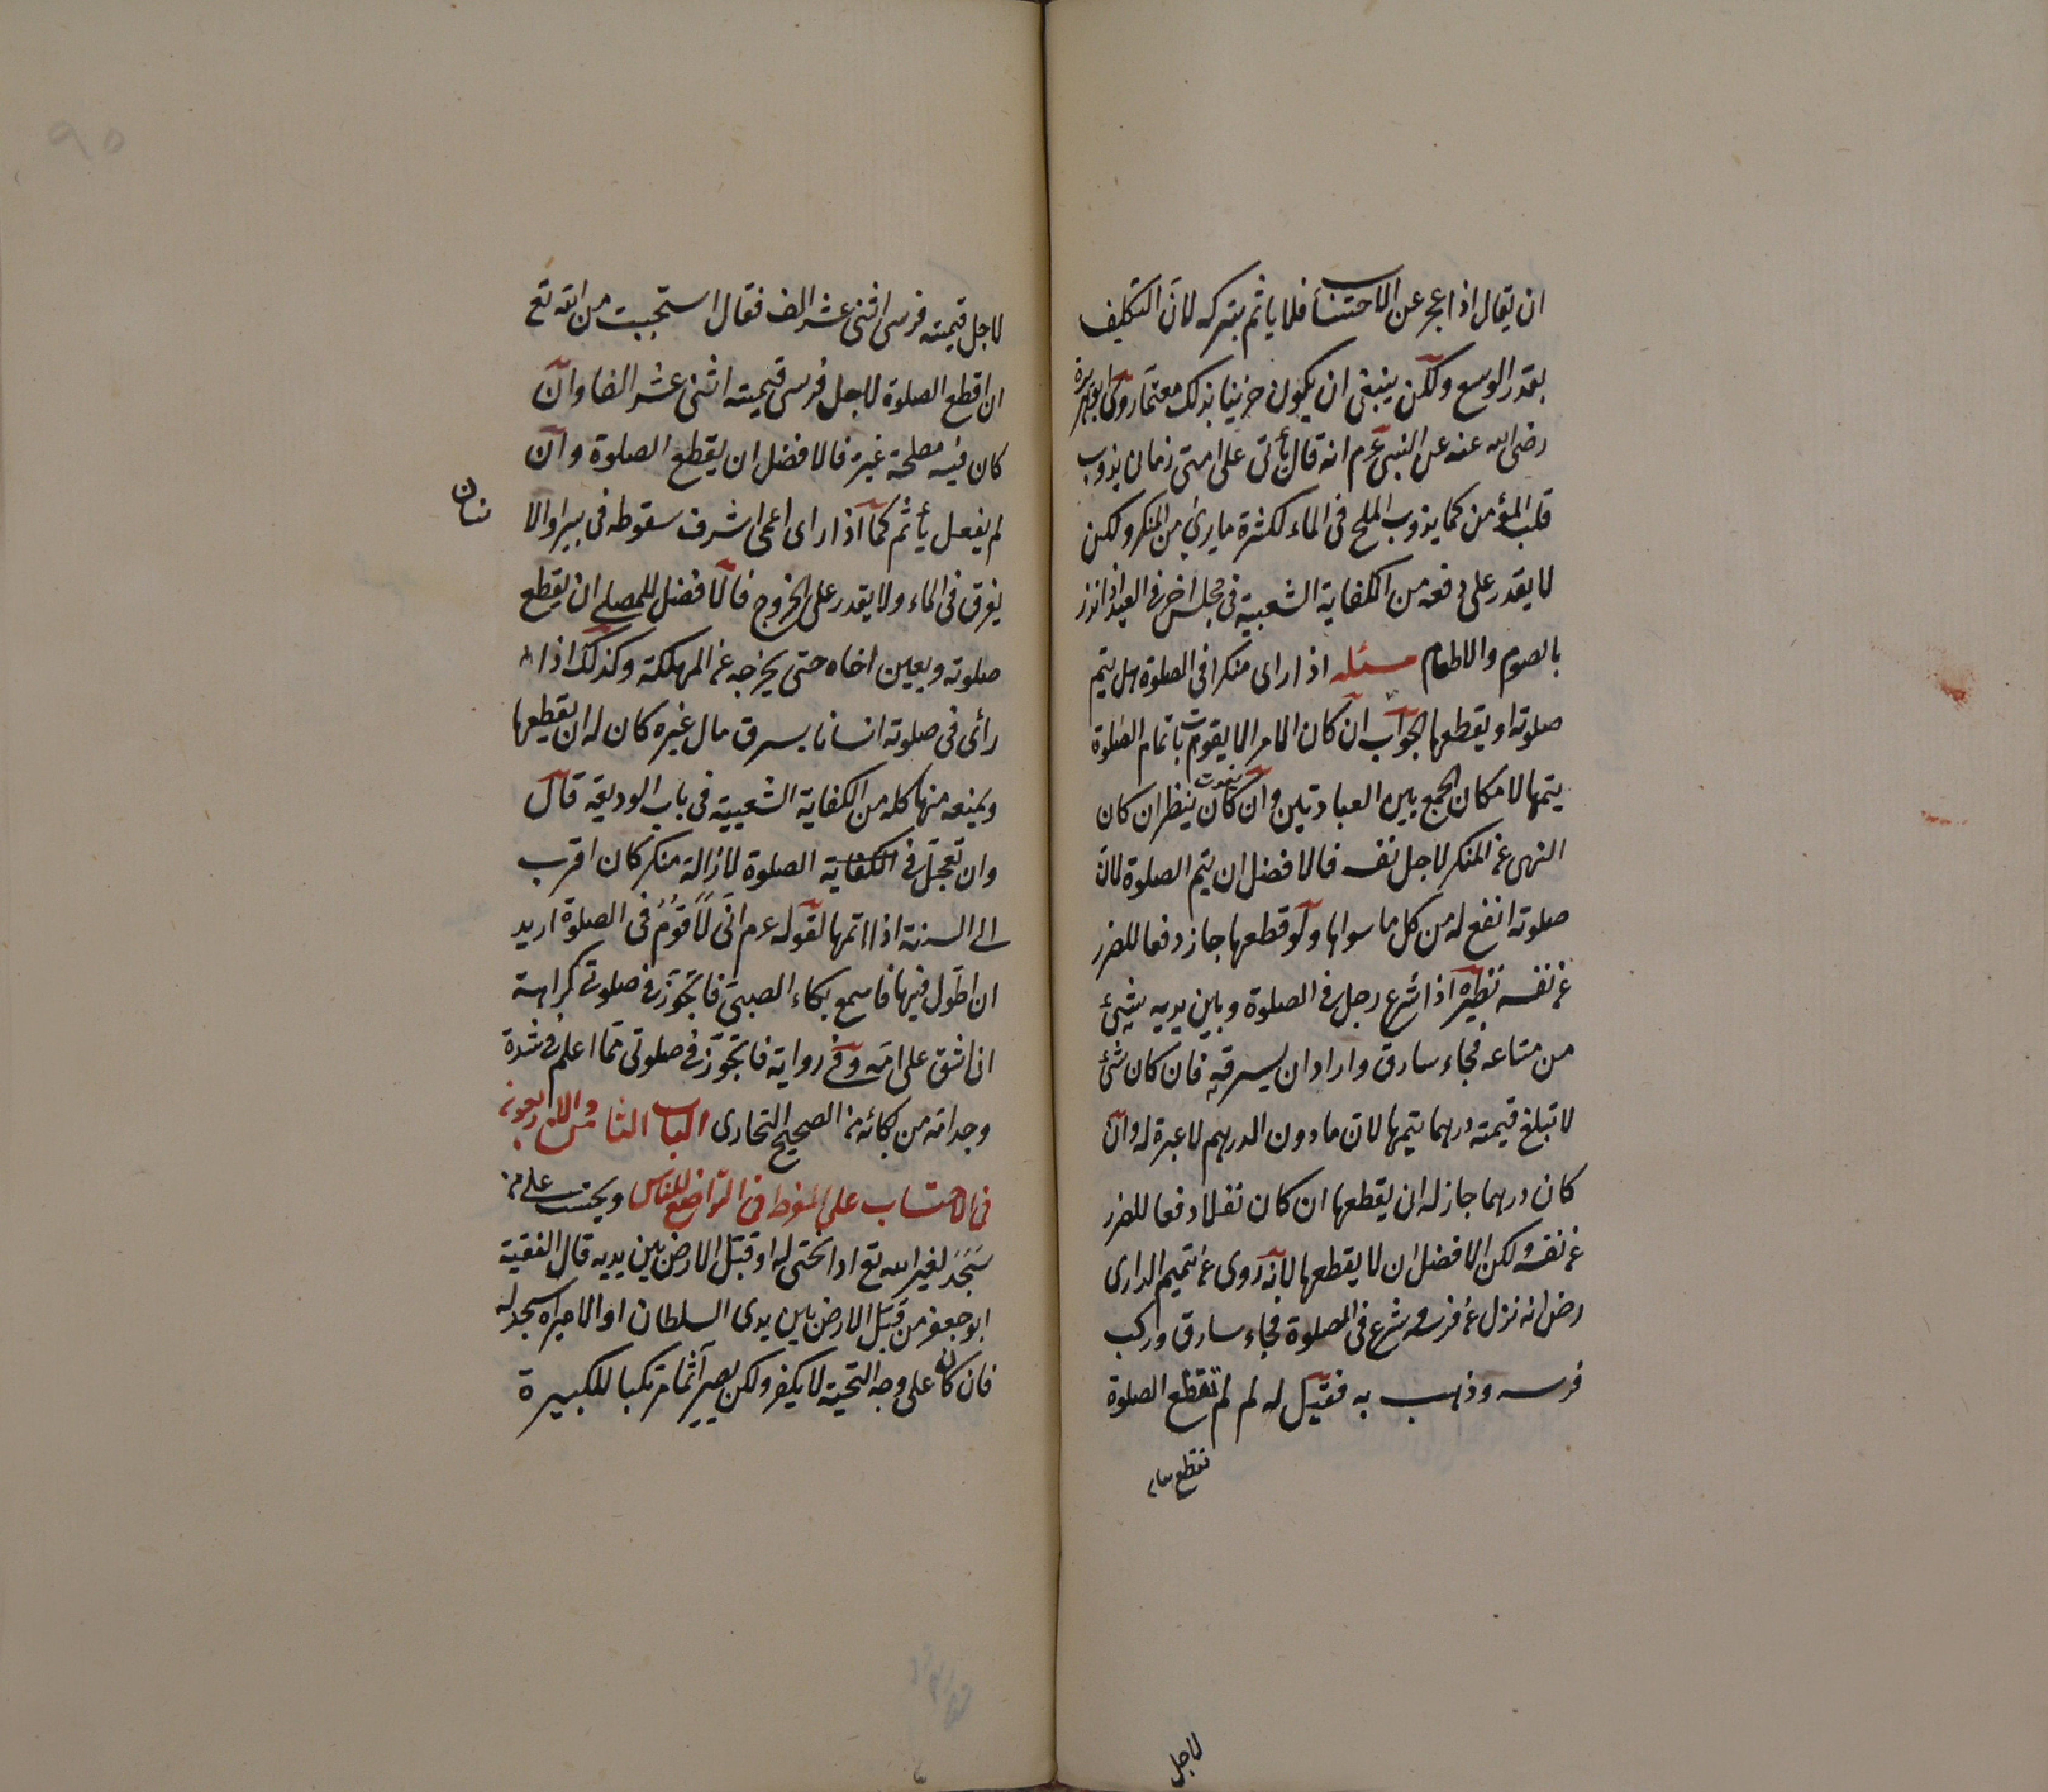 ان يقال اذا عجز عن الاحتساب فلا ياثم بتركه لان التكليف
بقدر الوسع ولكن ينبغى ان يكون حزينا بذلك مغتما روى ابو هريرة
رضى الله عنه عن النبى عم انه قال يأتى على امتى زمان يذوب
قلب المؤمن كما يذوب الملح فى الماء لكثرة ما يرى من المنكر ولكن
لا يقدر على دفعه من الكفاية الشعبية فى مجلس اخر فى العيد اذا نذر
بالصوم والاطعام مسئله اذا راى منكرا فى الصلوة هل يتم
صلوته او يقطعها الجواب ان كان الامر لا يفوت باتمام الصلوة
يتمها لامكان الجمع بين العبادتين وان كان يفوت ينظر ان كان
النهى عن المنكر لاجل نفسه فالافضل ان يتم الصلوة لان
صلوته انفع له من كل ما سواها ولو قطعها جاز دفعا للضرر
عن نفسه نظيره اذا شرع رجل فى الصلوة وبين يديه شيئ
من متاعه فجاء سارق واراد ان يسرقه فان كان شئ
لا تبلغ قيمته درهما يتمها لان ما دون الدرهم لا عبرة له وان
كان درهما جاز له ان يقطعها ان كان نفلا دفعا للضرر
عن نفسه ولكن الافضل ان لا يقطعها لانه روى عن تميم الدارى
رض انه نزل عن فرسه وشرع فى الصلوة فجاء سارق وركب
فرسه وذهب به فقيل له لم لم تقطع الصلوة
فقطع
لاجل
٩٥
لاجل قيمته فرسى اثنى عشر الف فقال استحييت من الله تع
ان اقطع الصلوة لاجل فرسى قيمته اثنى عشر الفا وان
كان فيه مصلحة غيره فالافضل ان يقطع الصلوة وان
لم يفعل يأثم كما اذا راى اعمى اشرف سقوطه فى بير او الا
يغرق فى الماء ولا يقدر على الخروج فالافضل للمصلى ان يقطع
صلوته ويعين اخاه حتى يخرجه عن المهلكة وكذلك اذا
رأى فى صلوته انسانا يسرق مال غيره كان له ان يقطعها
ويمنعه منها كله من الكفاية الشعبية فى باب الوديعة قال
وان تعجل فى الكفاية الصلوة لازالة منكر كان اقرب
الى السنة اذا اتمها لقوله عم انى لاقوم فى الصلوة اريد
ان اطول فيها فاسمع بكاء الصبى فاتجوز فى صلوتى كراهة
ان اشق على امه وفى رواية فاتجوز فى صلوتى مما اعلم فى شدة
وجد امه من بكائه من الصحيح البخارى الباب الثامن والاربعون
فى الاحتساب على المفرط فى التواضع للناس ويحتسب على من
سجد لغير الله تع او انحنى له او قبل الارض بين يديه قال الفقيه
ابو جعفر من قبل الارض بين يدى السلطان او الامير او سجد له
فان كان على وجه التحية لا يكفر ولكن يصير آثما مرتكبا للكبيرة